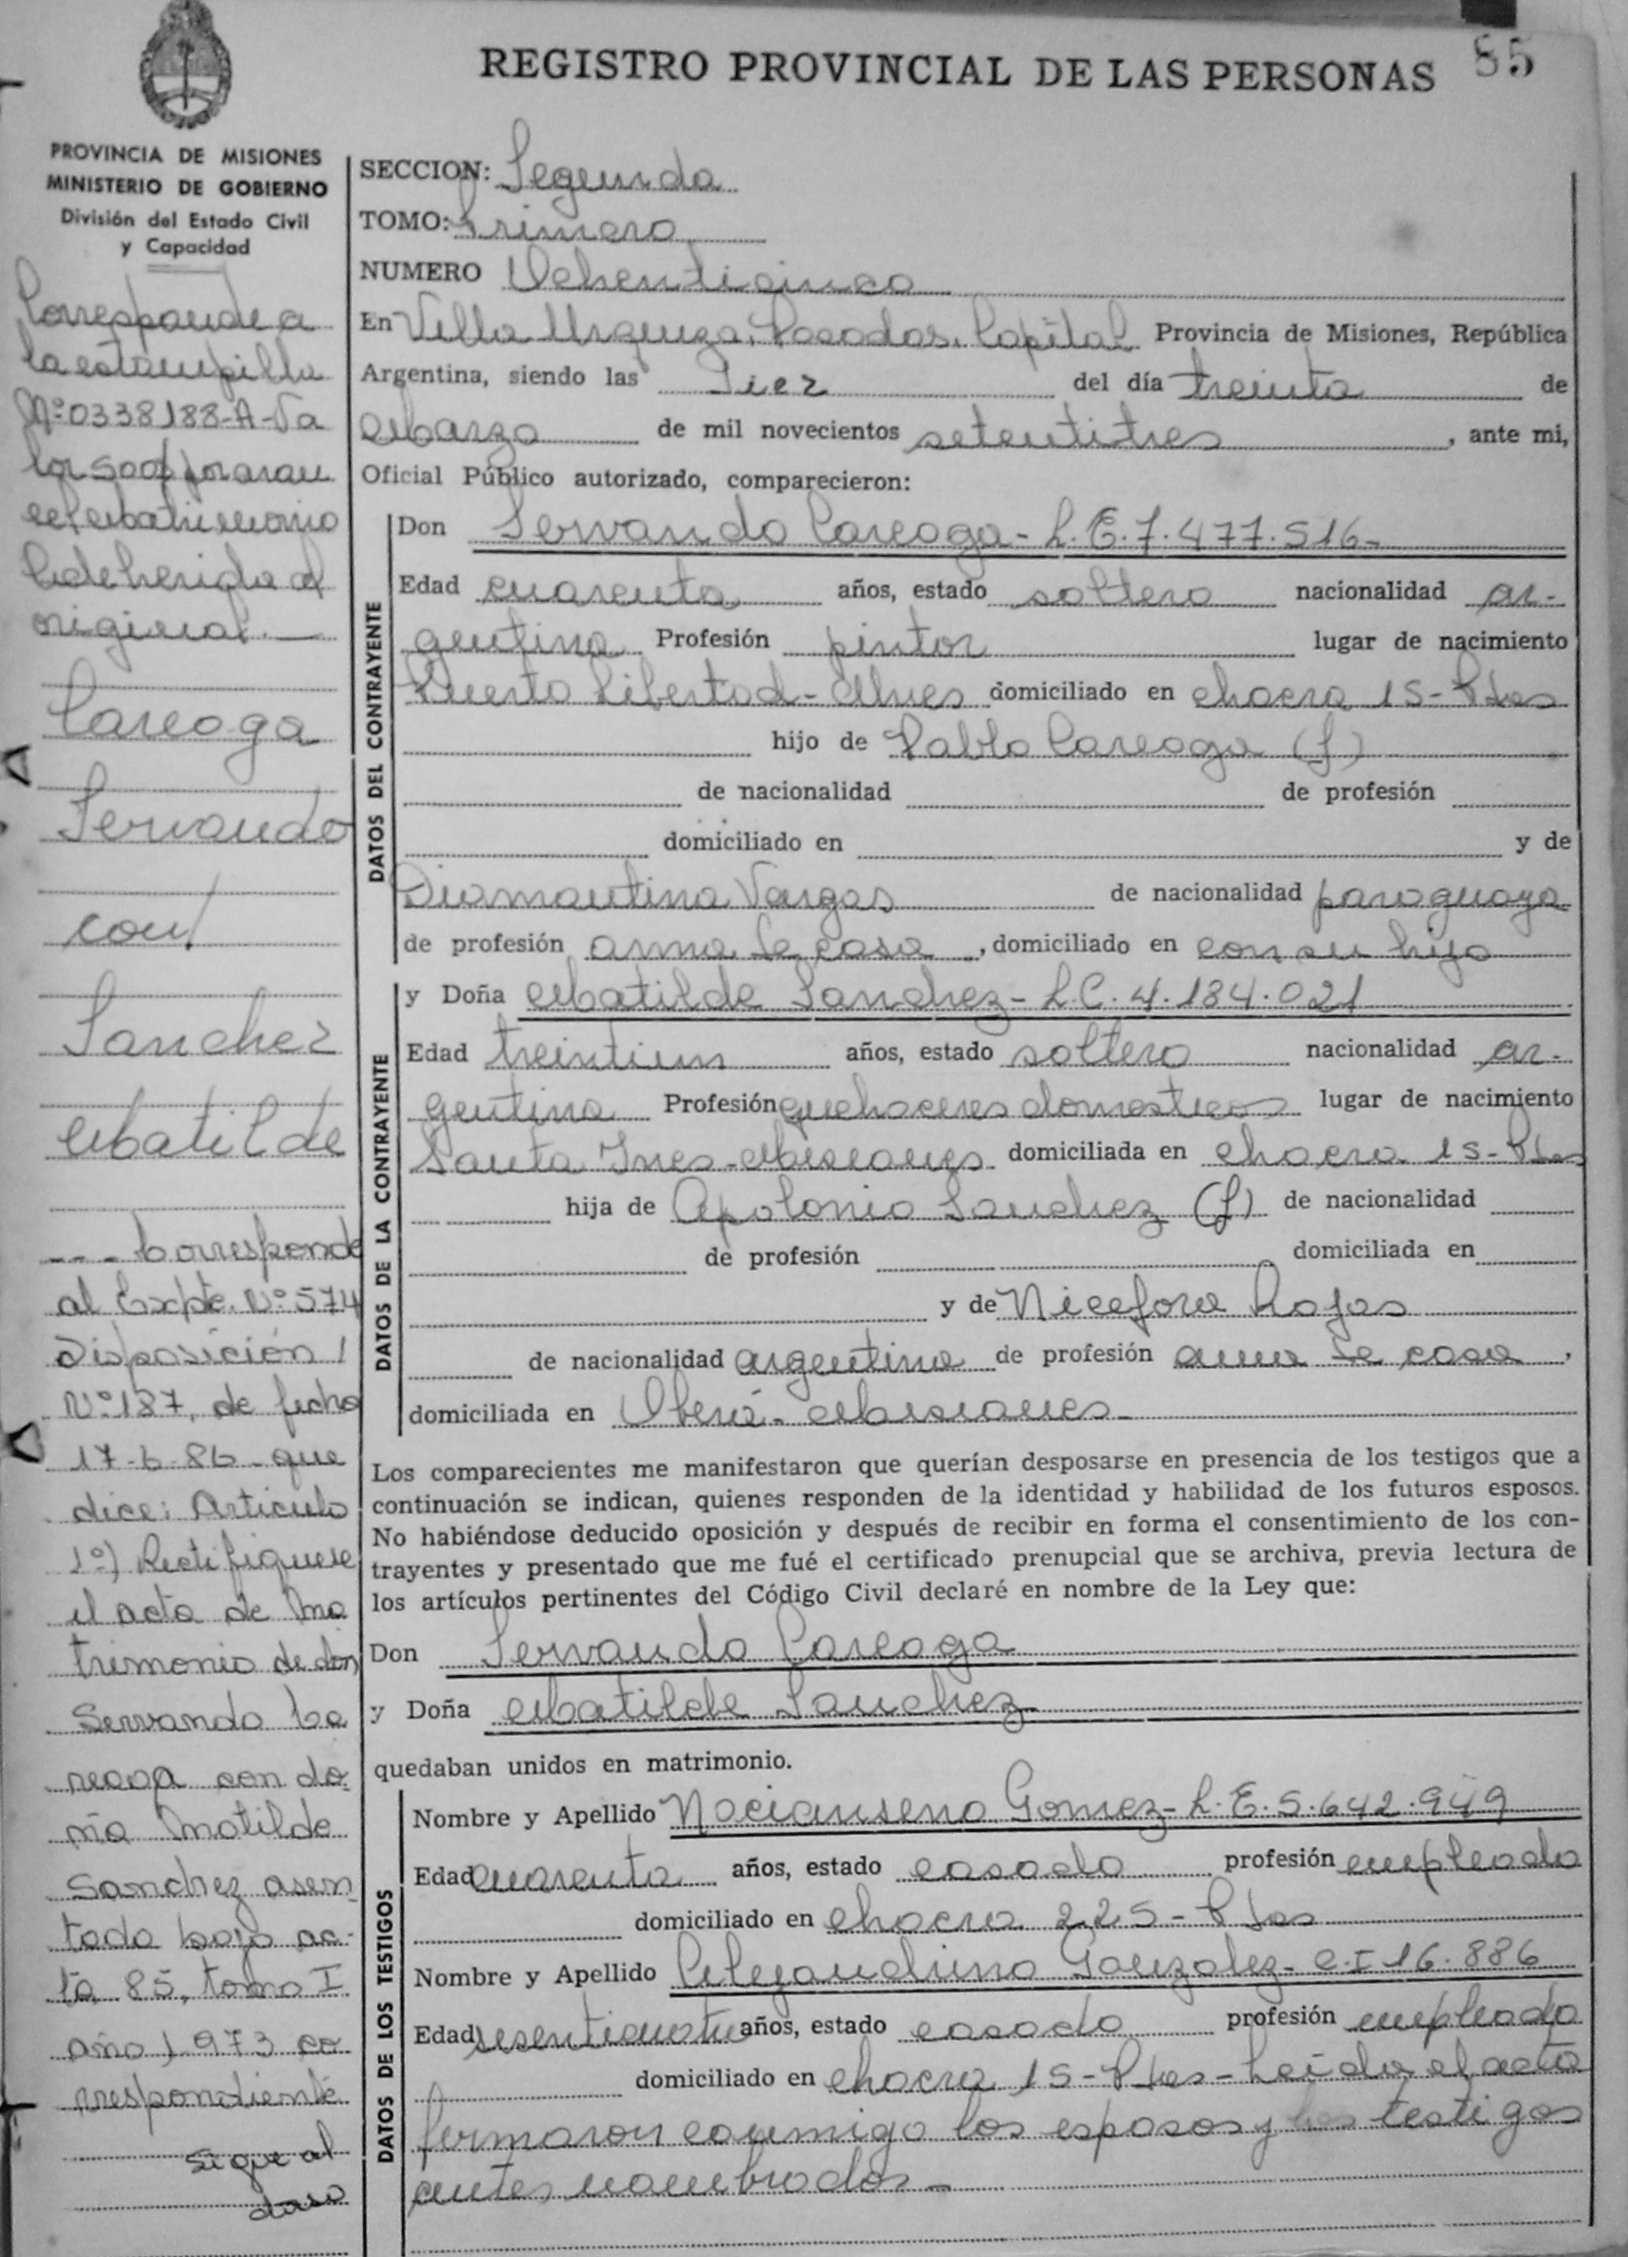 REGISTRO PROVINCIAL DE LAS PERSONAS 85
PROVINCIA DE MISIONES
MINISTERIO DE GOBIERNO
División del Estado Civil
y Capacidad
Corresponde a
la estampilla
Nº 0338188-A-Va
lor
el Matrimonio
adherida al
original.—
Careaga
Servando
con/
Sanchez
Matilde
--- Corresponde
al Expte. Nº 574
Disposición /
Nº 187, de fecha
17-6-86 - que
dice: Articulo
1º) Rectifiquese
el acta de Ma
trimonio de don
Servando Ca
reaga con do-
ña Matilde
Sanchez asen
tada bajo ac-
ta 85, tomo I
año 1.973 co
rrespondiente
sigue al
dorso
SECCION: Segunda
TOMO: Primero
NUMERO Ochenticinco
En Villa Urquiza, Posadas, Capital Provincia de Misiones, República
Argentina, siendo las Diez del día treinta de
Marzo de mil novecientos setentitres, ante mi,
Oficial Público autorizado, comparecieron:
DATOS DEL CONTRAYENTE
Don Servando Careaga - L.E. 7.477.516-
Edad cuarenta años, estado soltero nacionalidad ar-
gentina Profesión pintor lugar de nacimiento
Puerto Libertad - Mnes domiciliado en chacra 15 - Pdas
hijo de Pablo Careaga (f)
de nacionalidad de profesión
domiciliado en y de
Diamantina Vargas de nacionalidad paraguaya
de profesión ama de casa, domiciliado en con su hijo
DATOS DE LA CONTRAYENTE
y Doña Matilde Sanchez - L.C. 4.184.021
Edad treintiun años, estado soltera nacionalidad ar-
gentina Profesión quehaceres domesticos lugar de nacimiento
Santa Ines - Misiones domiciliada en chacra 15 - Pdas
hija de Apolonio Sanchez (f) de nacionalidad
de profesión domiciliada en
y de Nicefora Rojas
de nacionalidad argentina de profesión ama de casa,
domiciliada en Oberá - Misiones-
Los comparecientes me manifestaron que querían desposarse en presencia de los testigos que a
continuación se indican, quienes responden de la identidad y habilidad de los futuros esposos.
No habiéndose deducido oposición y después de recibir en forma el consentimiento de los con-
trayentes y presentado que me fué el certificado prenupcial que se archiva, previa lectura de
los artículos pertinentes del Código Civil declaré en nombre de la Ley que:
Don Servando Careaga
y Doña Matilde Sanchez
quedaban unidos en matrimonio.
DATOS DE LOS TESTIGOS
Nombre y Apellido Nacianseno Gomez - L.E. 5.642.949
Edad cuarenta años, estado casado profesión empleado
domiciliado en chacra 225 - Pdas
Nombre y Apellido Alejandrino Gonzalez - C.I 16.886
Edad años, estado casado profesión empleado
domiciliado en chacra 15 - Pdas - Leida el acta
firmaron conmigo los esposos y los testigos
antes nombrados -